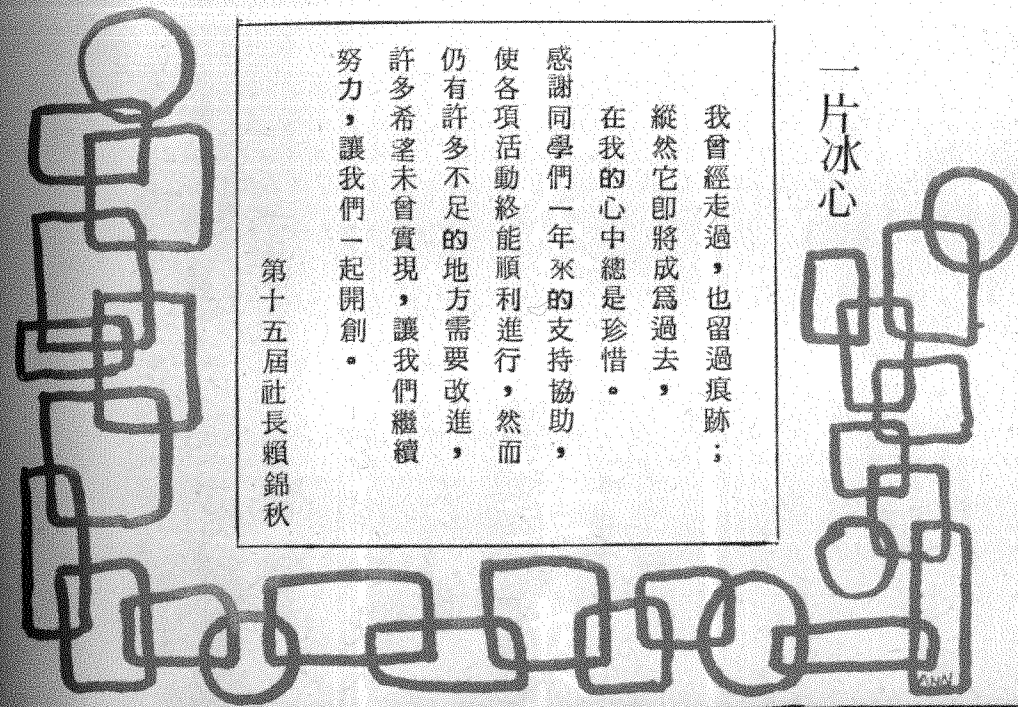 一片冰心
我曾經走過，也留過痕跡；
縱然它卽將成爲過去，
在我的心中總是珍惜。
感謝同學們一年來的支持協助，
使各項活動終能順利進行，然而
仍有許多不足的地方需要改進，
許多希望未曾實現，讓我們繼續
努力，讓我們一起開創。
第十五屆社長賴錦秋